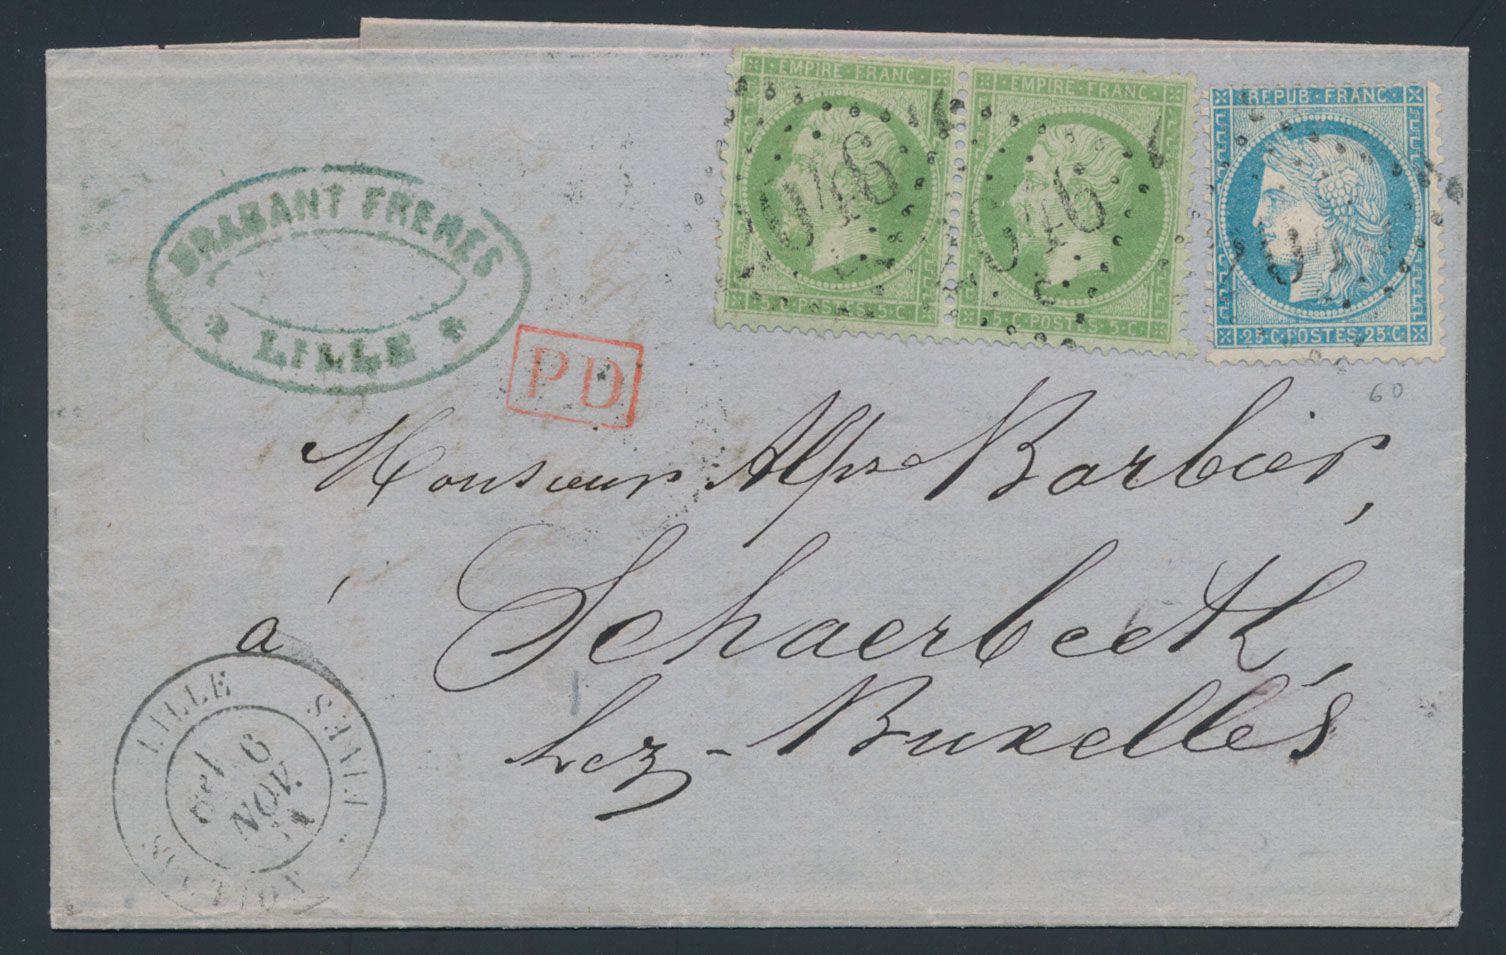 EMPIRE · FRANC ·
5 · C · POSTES · 5 · C ·
EMPIRE · FRANC ·
15 · C · POSTES · 5 · C ·
REPUB · FRANC ·
25 · C · POSTES · 25 · C ·
BRABANT FRERES
LILLE
PD
60
Monsieur Alps Barbier,
à Schaerbeeth,
Lez-Bruxelles
LILLE
6
NOV.
71